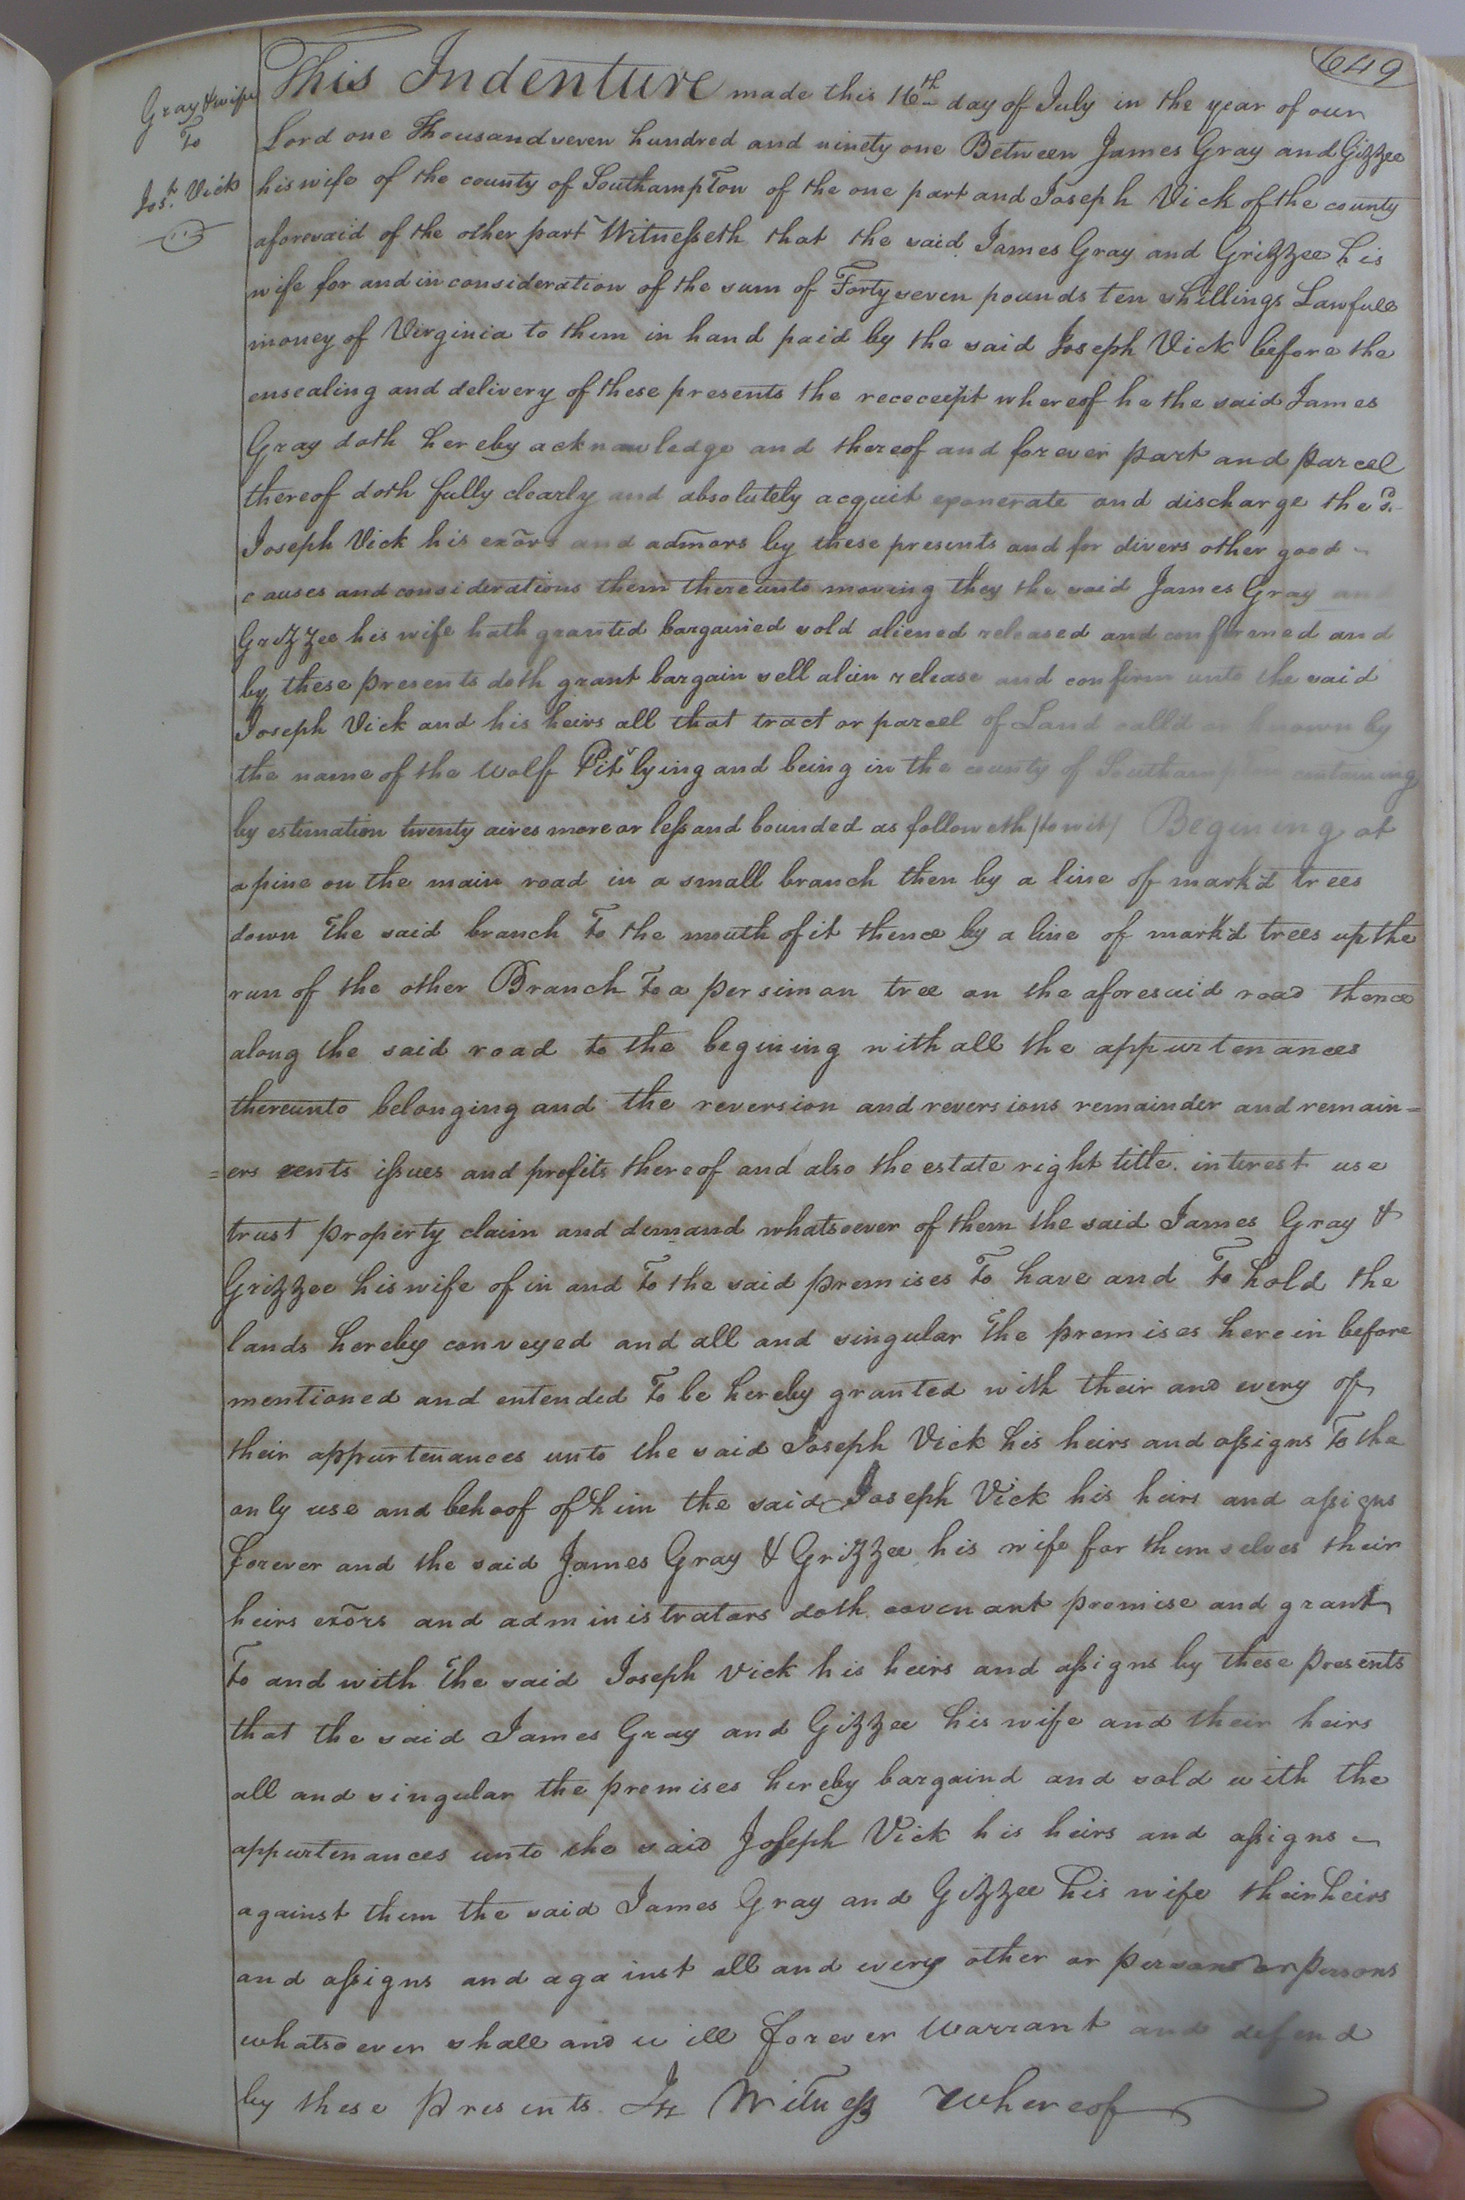 649
Gray & wife
To
Jos. Vick
This Indenture made this 16th day of July in the year of our
Lord one Thousand seven hundred and ninety one Between James Gray and Gizzee
his wife of the county of Southampton of the one part and Joseph Vick of the county
aforesaid of the other part Witnesseth that the said James Gray and Grizzee his
wife for and in consideration of the sum of Forty seven pounds ten shillings Lawfull
money of Virginia to them in hand paid by the said Joseph Vick before the
ensealing and delivery of these presents the receceipt whereof he the said James
Gray doth hereby acknowledge and thereof and forever part and parcel
thereof doth fully clearly and absolutely acquit exonerate and discharge the sd.
Joseph Vick his exors and admors by these presents and for divers other good
causes and considerations them thereunto moving they the said James Gray and
Grizzee his wife hath granted bargained sold aliened released and confirmed and
by these presents doth grant bargain sell alien release and confirm unto the said
Joseph Vick and his heirs all that tract or parcel of Land calld or known by
the name of the Wolf Pit lying and being in the county of Southampton containing
by estimation twenty acres more or less and bounded as followeth (towit) Begining at
a pine on the main road in a small branch then by a line of mark'd trees
down the said branch To the mouth of it thence by a line of mark'd trees up the
run of the other Branch To a persimon tree on the aforesaid road thence
along the said road to the begining with all the appurtenances
thereunto belonging and the reversion and reversions remainder and remain=
=ers rents issues and profits thereof and also the estate right title interest use
trust property claim and demand whatsoever of them the said James Gray &
Grizzee his wife of in and To the said premises To have and To hold the
lands hereby conveyed and all and singular the premises herein before
mentioned and entended To be hereby granted with their and every of
their appurtenances unto the said Joseph Vick his heirs and assigns To the
only use and behoof of him the said Joseph Vick his heirs and assigns
forever and the said James Gray & Grizzee his wife for themselves their
heirs exors and administrators doth covenant promise and grant
To and with the said Joseph Vick his heirs and assigns by these presents
that the said James Gray and Gizzee his wife and their heirs
all and singular the premises hereby bargaind and sold with the
appurtenances unto the said Joseph Vick his heirs and assigns
against them the said James Gray and Gizzee his wife their heirs
and assigns and against all and every other or persons or persons
whatsoever shall and will forever warrant and defend
by these presents In Witness whereof